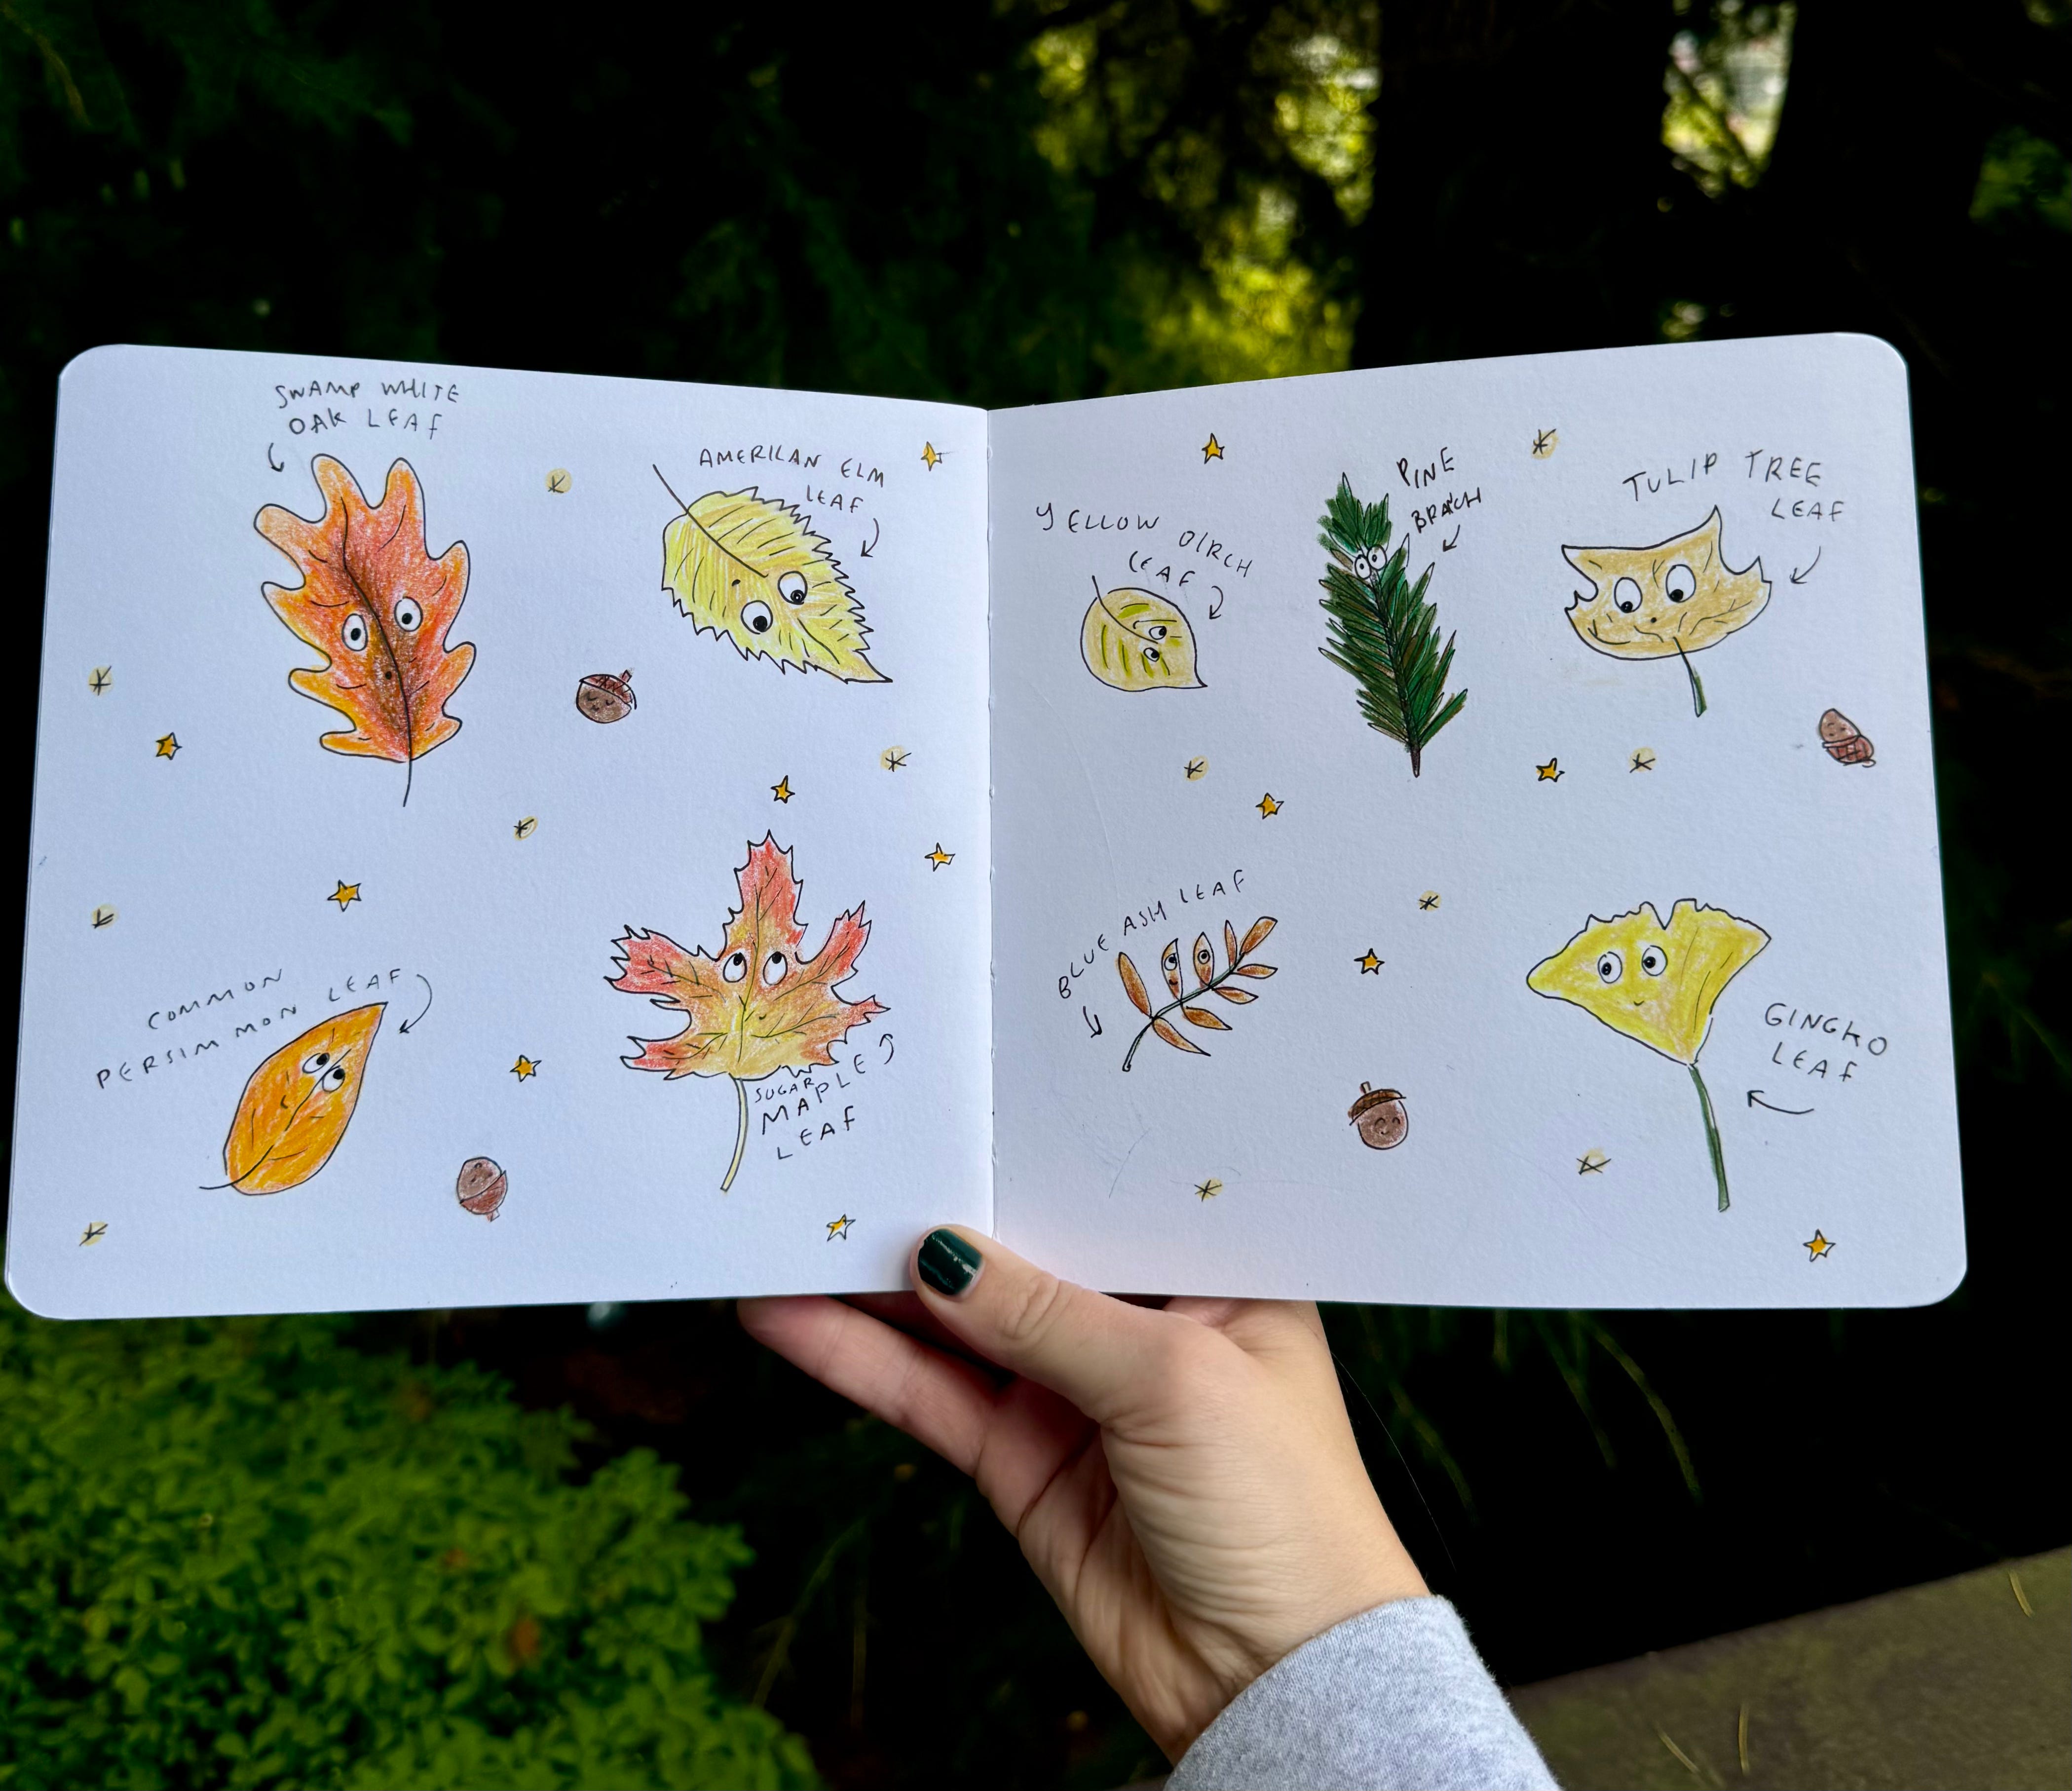 SWAMP WHITE
OAK LEAF
AMERICAN ELM
LEAF
COMMON
PERSIMMON LEAF
SUGAR
MAPLE
LEAF
YELLOW BIRCH
LEAF
PINE
BRANCH
TULIP TREE
LEAF
BLUE ASH LEAF
GINGKO
LEAF